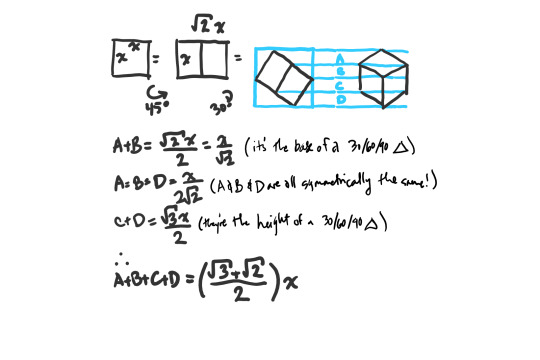 √2 x
x x = x =
A
B
C
D
45° 30°
A+B = √2 x / 2 = x / √2 (it's the base of a 30/60/90 △)
A=B=D = x / 2√2 (A&B&D are all symmetrically the same!)
C+D = √3 x / 2 (they're the height of a 30/60/90 △)
∴
A+B+C+D = ( √3+√2 / 2 ) x